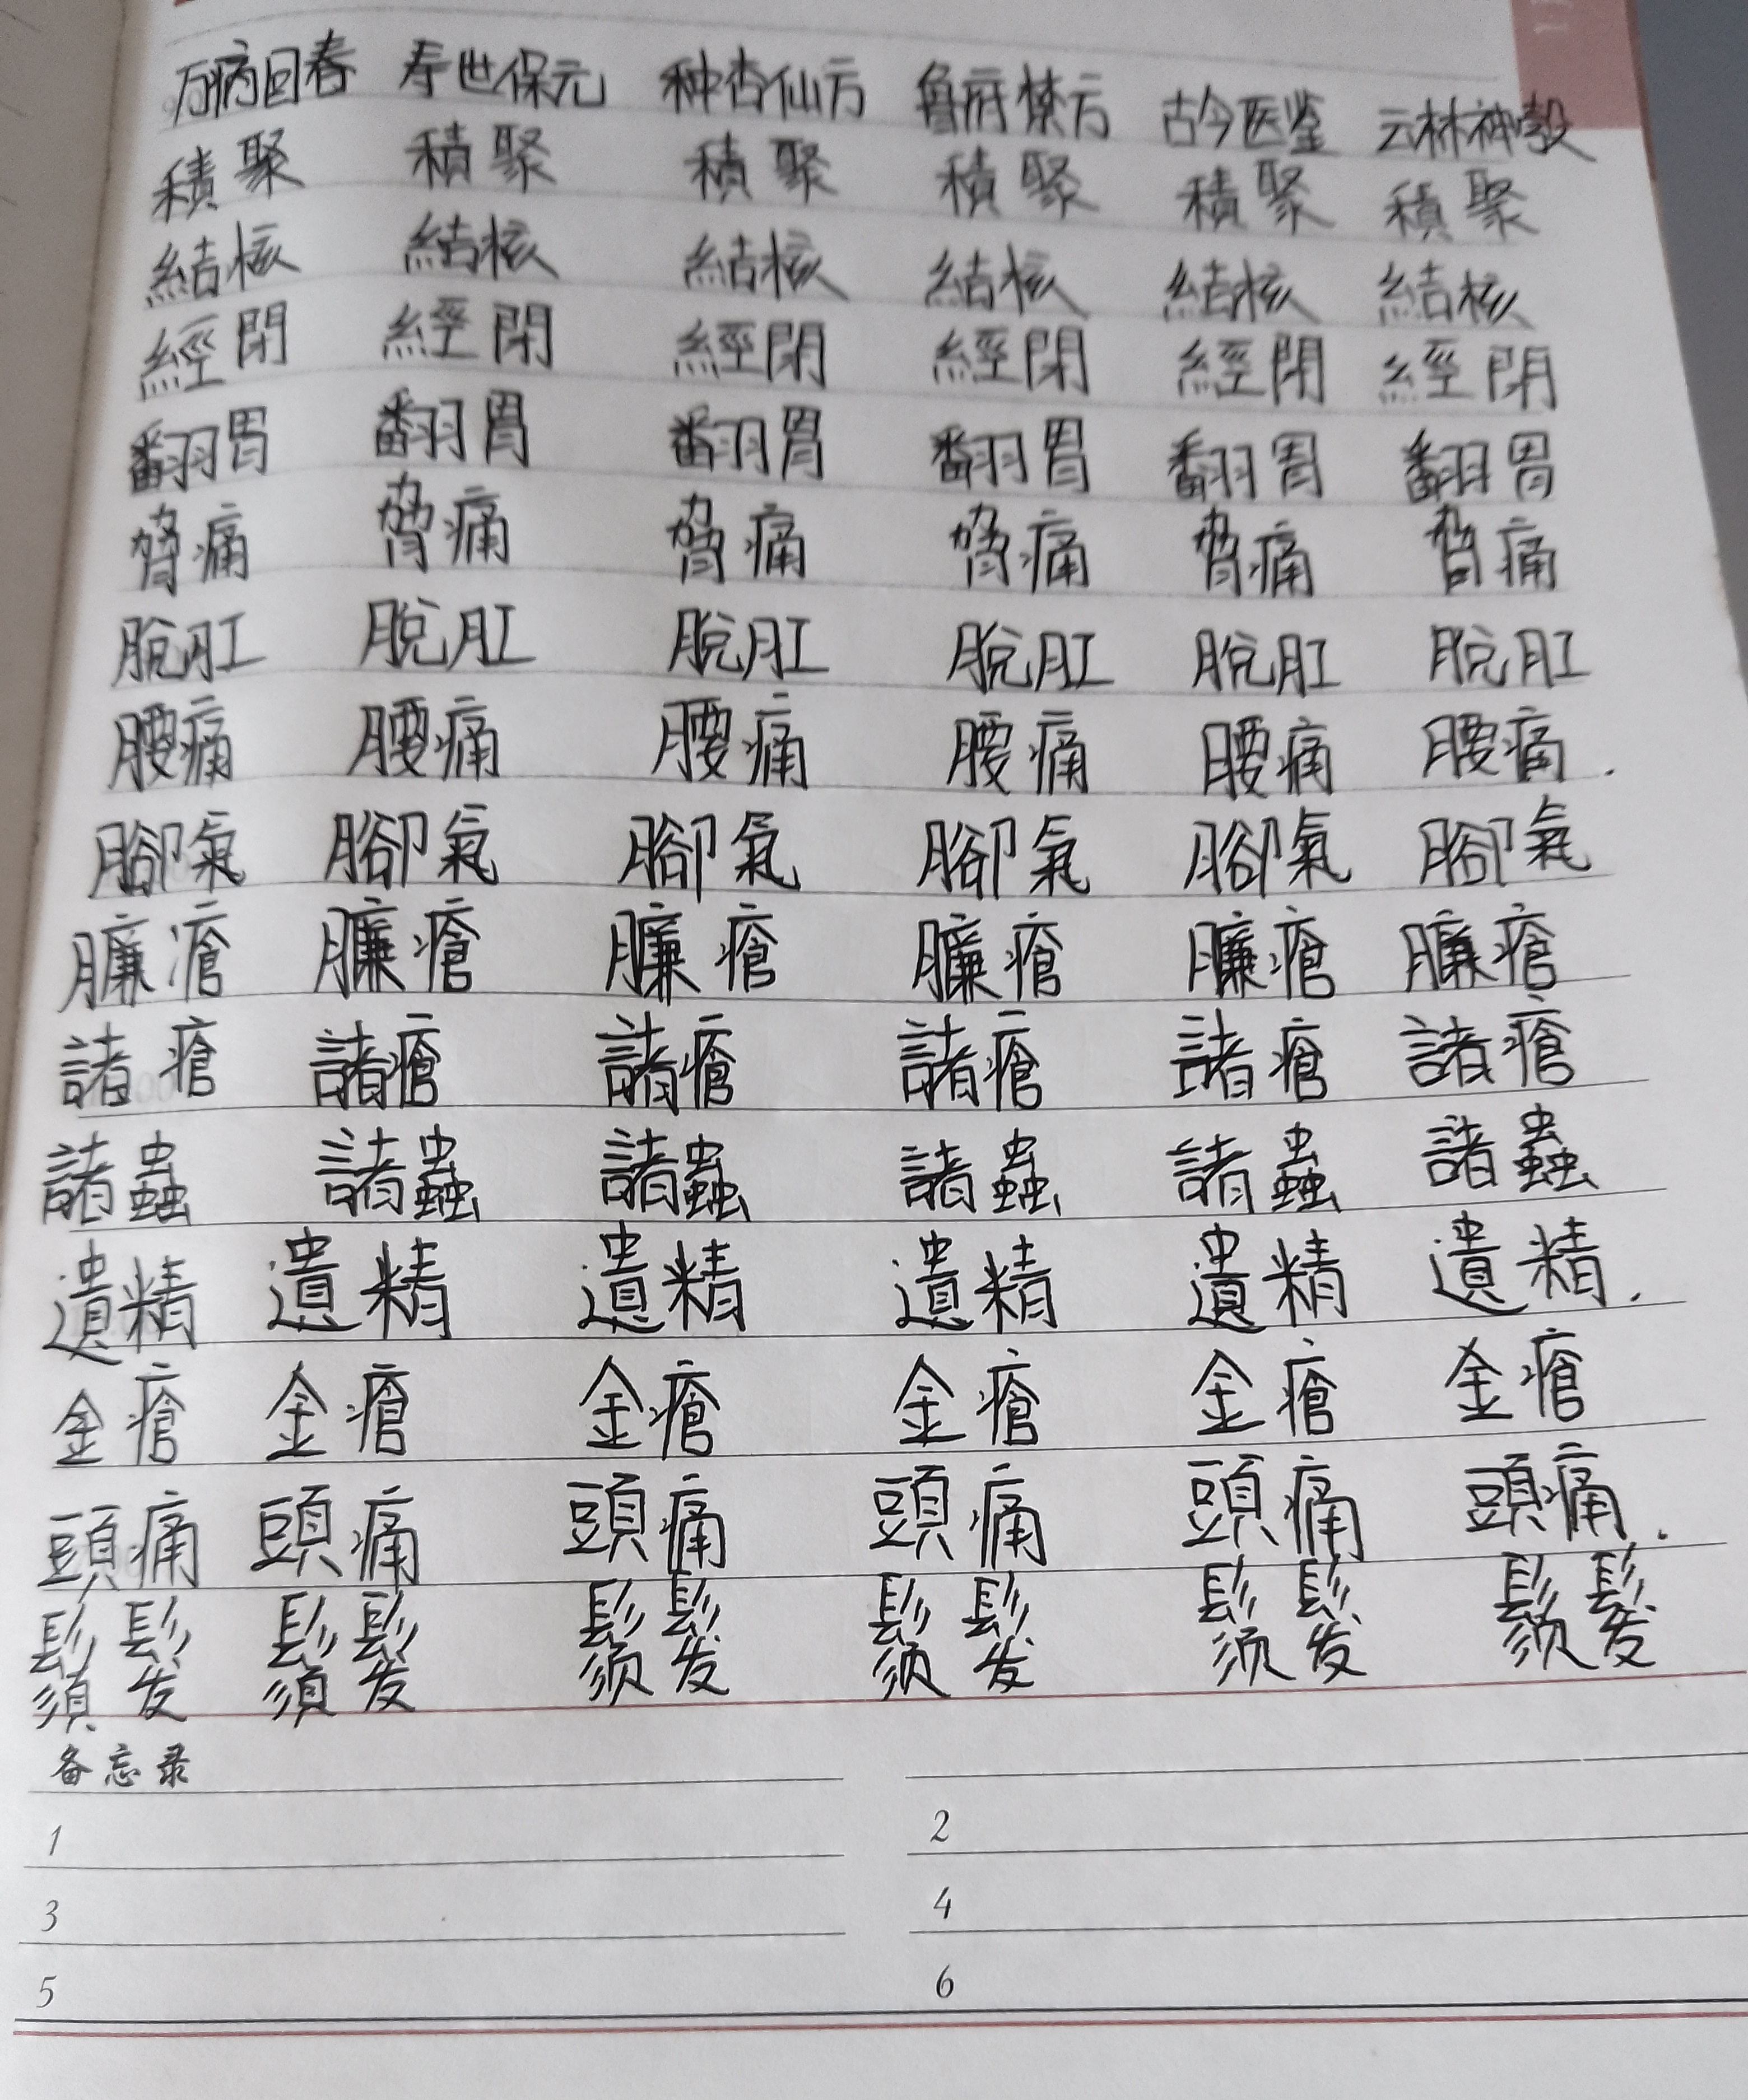 万病回春 寿世保元 种杏仙方 鲁府禁方 古今医鉴 云林神彀
積聚 積聚 積聚 積聚 積聚 積聚
結核 結核 結核 結核 結核 結核
經閉 經閉 經閉 經閉 經閉 經閉
翻胃 翻胃 翻胃 翻胃 翻胃 翻胃
脅痛 脅痛 脅痛 脅痛 脅痛 脅痛
脫肛 脫肛 脫肛 脫肛 脫肛 脫肛
腰痛 腰痛 腰痛 腰痛 腰痛 腰痛.
腳氣 腳氣 腳氣 腳氣 腳氣 腳氣
臁瘡 臁瘡 臁瘡 臁瘡 臁瘡 臁瘡
諸瘡 諸瘡 諸瘡 諸瘡 諸瘡 諸瘡
諸蟲 諸蟲 諸蟲 諸蟲 諸蟲 諸蟲
遺精 遺精 遺精 遺精 遺精 遺精.
金瘡 金瘡 金瘡 金瘡 金瘡 金瘡
頭痛 頭痛 頭痛 頭痛 頭痛 頭痛.
鬚髮 鬚髮 鬚髮 鬚髮 鬚髮 鬚髮
备忘录
1 2
3 4
5 6